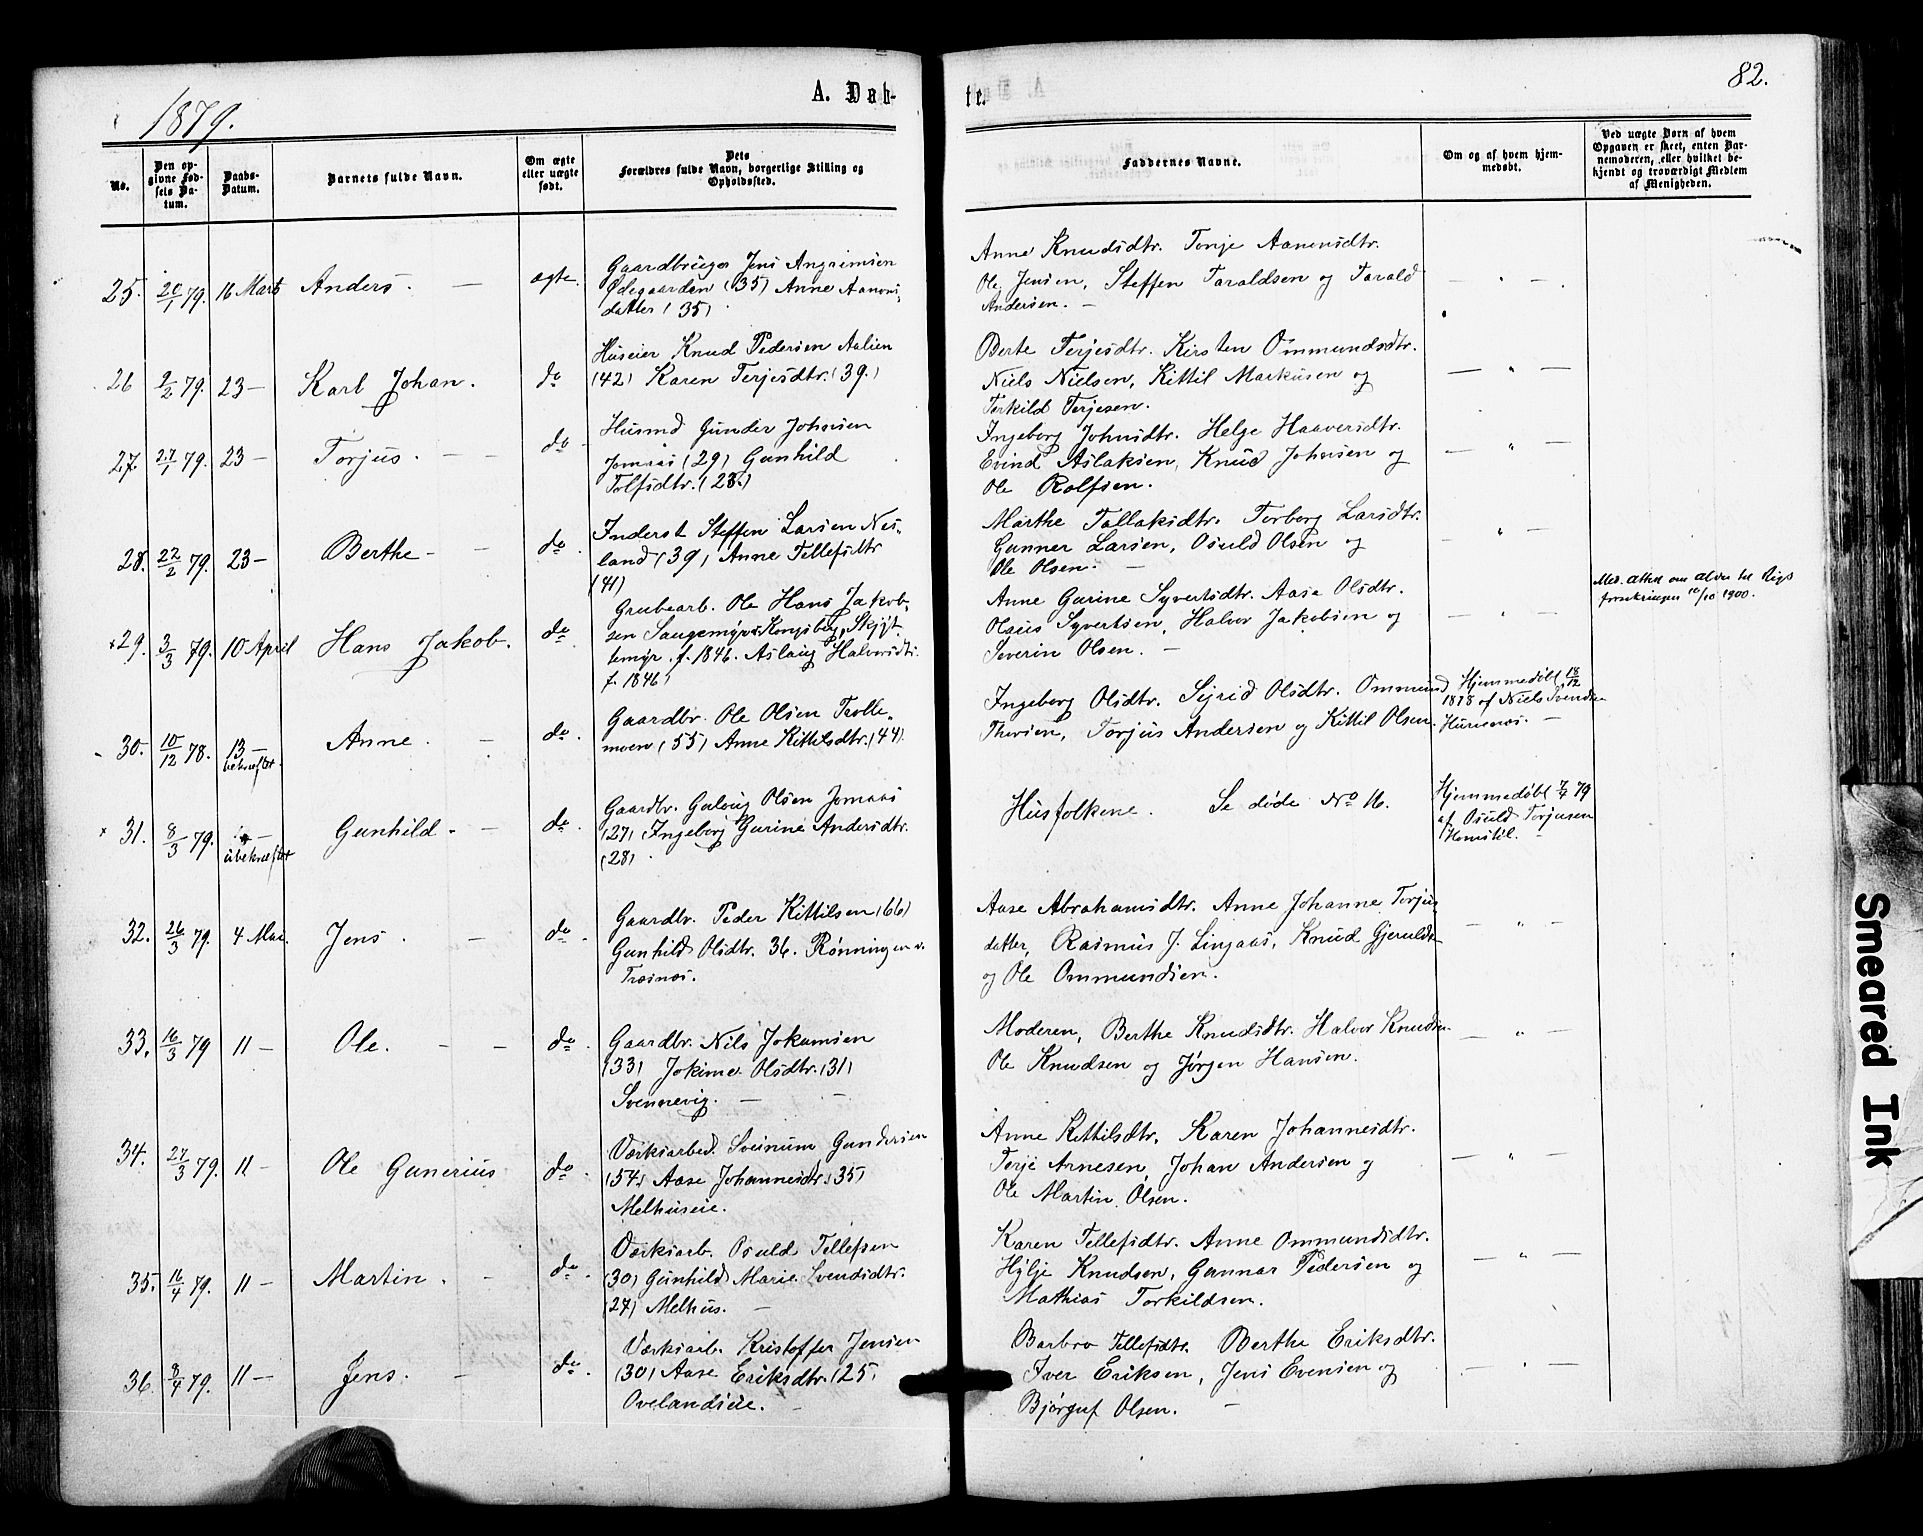 1879.
A. Døb-
te.
82.
No.
Den opgivne Fødsels Datum.
Daabs-Datum.
Barnets fulde Navn.
Om ægte eller uægte født.
Dets Forældres fulde Navn, borgerlige Stilling og Opholdssted.
Faddernes Navne.
Om og af hvem hjemmedøbt.
Ved uægte Børn af hvem Opgaven er skeet, enten Barnemoderen, eller hvilket bekjendt og troværdigt Medlem af Menigheden.
25. 20/1 79. 16 Marts Anders. — ægte.
Gaardbruger Jens Angrimsen
Ødegaarden (35) Anne Aanons-
datter (35)
Anne Knudsdtr. Tonje Aanonsdtr.
Ole Jensen, Steffen Taraldsen og Tarald
Andersen. —
— " —.
26 2/2 79. 23 — Karl Johan. do
Huseier Knud Pedersen Aalien
(42) Karen Terjesdtr. (39.)
Berte Terjesdtr. Kirsten Ommundsdtr.
Niels Nielsen, Kittil Markusen og
Terkild Terjesen.
— " —
27. 27/1 79. 23 — Torjus. — — do
Husmd Gunder Johnsen
Jomaas (29) Gunhild
Tolfsdtr. (28.)
Ingeborg Johnsdtr. Helge Haaversdtr.
Evind Aslaksen, Knud Johnsen og
Ole Rolfsen.
— " —
28. 22/2 79. 23 — Berthe — — do.
Inderst Steffen Larsen Nes-
land (39) Anne Tellefsdtr
(41)
Marthe Tallaksdtr. Torborg Larsdtr.
Gunner Larsen, Osuld Olsen og
Ole Olsen. —
— " —
×29. 3/3 79. 10 April Hans Jakob. do.
Grubearb. Ole Hans Jakob-
sen Saugemyr, Kongsberg, Skyt-
temyr. f. 1846. Aslaug Halvorsdtr.
f. 1846)
Anne Gurine Syvertsdtr. Aase Olsdtr.
Olaus Syvertsen, Halvor Jakobsen og
Severin Olsen. —
— " —
Med. Attest om Alder til Rigs
forsikringen 10/10 1900.
30. 10/12 78. 13 — bekræftet. Anne. — do.
Gaardbr. Ole Olsen Trolle-
moen (55) Anne Kittilsdtr. (44)
Ingeborg Olsdtr. Sejrid Olsdtr. Ommund
Thorsen, Torjus Andersen og Kittil Olsen.
Hjemmedøbt 18/12
1878 af Niels Svendsen
—
× 31. 8/3 79. — ubekræftet Gunhild. — do.
Gaardbr. Olsen Jomaas
(27) Ingeborg Gurine Andersdtr.
(28)
Husfolkene. Se døde No 16.
Hjemmedøbt 7/4 79
af Osuld Torjusen
Homstøl. —
32. 26/3 79. 4 Mai. Jens. — do.
Gaardbr. Peder Kittilsen (66)
Gunhild Olsdtr. 36. Rønningen v.
Træsnes.
Aase Abrahamsdtr. Anne Johanne Torjus-
datter, Rasmus J. Lingaas, Knud Gjerulds-
og Ole Ommundsen.
— " —
33. 16/3 79 11 — Ole. — — do.
Gaardbr. Nils Jokumsen
(33) Jokime Olsdtr. (31)
Svennevig. — —
Moderen, Berthe Knudsdtr. Halvor Knudsen
Ole Knudsen og Jørgen Hansen.
— " —
34. 27/3 79. 11 — Ole Gunerius do.
Værksarbed. Sveinum Gundersen
(54.) Aase Johannesdtr. (35)
Melhuseie.
Anne Kittilsdtr, Karen Johannesdtr.
Terje Arnesen, Johan Andersen og
Ole Martin Olsen.
— " —
35. 16/4 79. 11 — Martin. — do.
Værksarb. Osuld Tellefsen
(30) Gunhild Marie Svendsdtr.
(27) Melhus. —
Karen Tellefsdtr. Anne Ommundsdtr.
Hylje Knudsen, Gunnar Pedersen og
Mathias Torkildsen.
— " —
36. 8/4 79. 11 — Jens. — do.
Værksarb. Kristoffer Jensen
(30) Aase Eriksdtr. (25)
Ovelandseie. —
Barbro Tellefsdtr. Berthe Eriksdtr.
Iver Eriksen, Jens Evensen og
Bjorguf Olsen. —
— " —
Smeared Ink